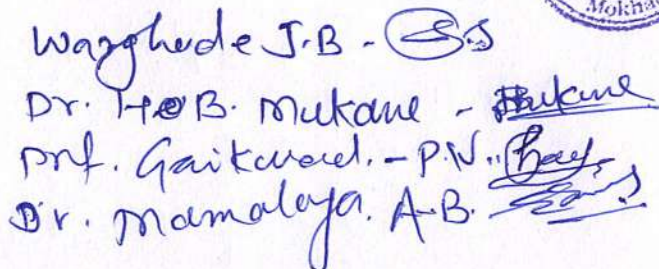 Mokha
Warghude J.B -
Dr. H B. Mukane - Mukane
Prof. Gaikwad. - P.N.
Dr. Mamalaya. A-B.